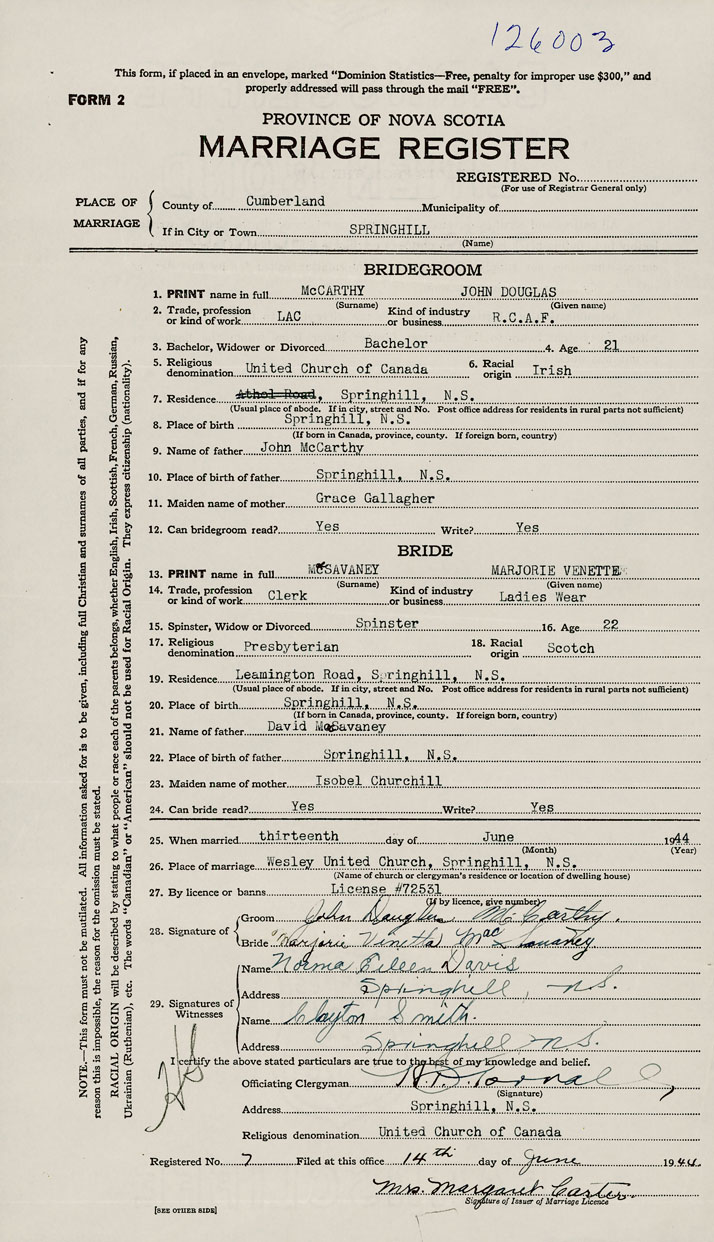 126003
This form, if placed in an envelope, marked "Dominion Statistics—Free, penalty for improper use $300," and
properly addressed will pass through the mail "FREE".
FORM 2
PROVINCE OF NOVA SCOTIA
MARRIAGE REGISTER
REGISTERED No.
(For use of Registrar General only)
PLACE OF MARRIAGE
County of Cumberland Municipality of
If in City or Town SPRINGHILL
(Name)
BRIDEGROOM
1. PRINT name in full McCARTHY JOHN DOUGLAS
(Surname) (Given name)
2. Trade, profession or kind of work LAC Kind of industry or business R.C.A.F.
3. Bachelor, Widower or Divorced Bachelor 4. Age 21
5. Religious denomination United Church of Canada 6. Racial origin Irish
7. Residence Athol Road, Springhill, N.S.
(Usual place of abode. If in city, street and No. Post office address for residents in rural parts not sufficient)
8. Place of birth Springhill, N.S.
(If born in Canada, province, county. If foreign born, country)
9. Name of father John McCarthy
10. Place of birth of father Springhill, N.S.
11. Maiden name of mother Grace Gallagher
12. Can bridegroom read? Yes Write? Yes
BRIDE
13. PRINT name in full SAVANEY MARJORIE VENETTE
(Surname) (Given name)
14. Trade, profession or kind of work Clerk Kind of industry or business Ladies Wear
15. Spinster, Widow or Divorced Spinster 16. Age 22
17. Religious denomination Presbyterian 18. Racial origin Scotch
19. Residence Leamington Road, Springhill, N.S.
(Usual place of abode. If in city, street and No. Post office address for residents in rural parts not sufficient)
20. Place of birth Springhill, N.S.
(If born in Canada, province, county. If foreign born, country)
21. Name of father David Savaney
22. Place of birth of father Springhill, N.S.
23. Maiden name of mother Isobel Churchill
24. Can bride read? Yes Write? Yes
25. When married thirteenth day of June 1944
(Month) (Year)
26. Place of marriage Wesley United Church, Springhill, N.S.
(Name of church or clergyman's residence or location of dwelling house)
27. By licence or banns License #72531
(If by licence, give number)
28. Signature of
Groom John Douglas McCarthy.
Bride Marjorie Vinetta Mac Savaney
29. Signatures of Witnesses
Name Norma Eileen Davis
Address Springhill, N.S.
Name Clayton Smith.
Address Springhill N.S.
I certify the above stated particulars are true to the best of my knowledge and belief.
Officiating Clergyman
(Signature)
Address Springhill, N.S.
Religious denomination United Church of Canada
Registered No. 7 Filed at this office 14th day of June 1944.
Mrs. Margaret Carter
Signature of Issuer of Marriage Licence
[SEE OTHER SIDE]
NOTE.—This form must not be mutilated. All information asked for is to be given, including full Christian and surnames of all parties, and if for any
reason this is impossible, the reason for the omission must be stated.
RACIAL ORIGIN will be described by stating to what people or race each of the parents belongs, whether English, Irish, Scottish, French, German, Russian,
Ukrainian (Ruthenian), etc. The words "Canadian" or "American" should not be used for Racial Origin. They express citizenship (nationality).